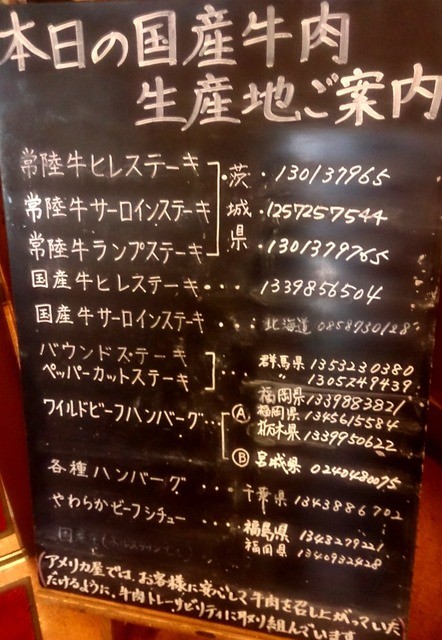 本日の国産牛肉
生産地ご案内
常陸牛ヒレステーキ
常陸牛サーロインステーキ
常陸牛ランプステーキ
茨城県
・130137965
・1257257544
・1301379765
国産牛ヒレステーキ・・・ 1339856504
国産牛サーロインステーキ ・・・ 北海道 0858730128
パウンドステーキ
ペッパーカットステーキ
・・・ 群馬県 1353230380
〃 1305249439
ワイルドビーフハンバーグ・・・
Ⓐ 福岡県 1339883821
福岡県 1345615584
栃木県 1339950622
Ⓑ 宮城県 0240480075
各種ハンバーグ ・・・・ 千葉県 1343886702
やわらかビーフシチュー ・・・・ 福島県 1343279221
福岡県 1340932428
(アメリカ屋では、お客様に安心して牛肉を召し上がっていた
だけるように、牛肉トレーサビリティに取り組んでいます